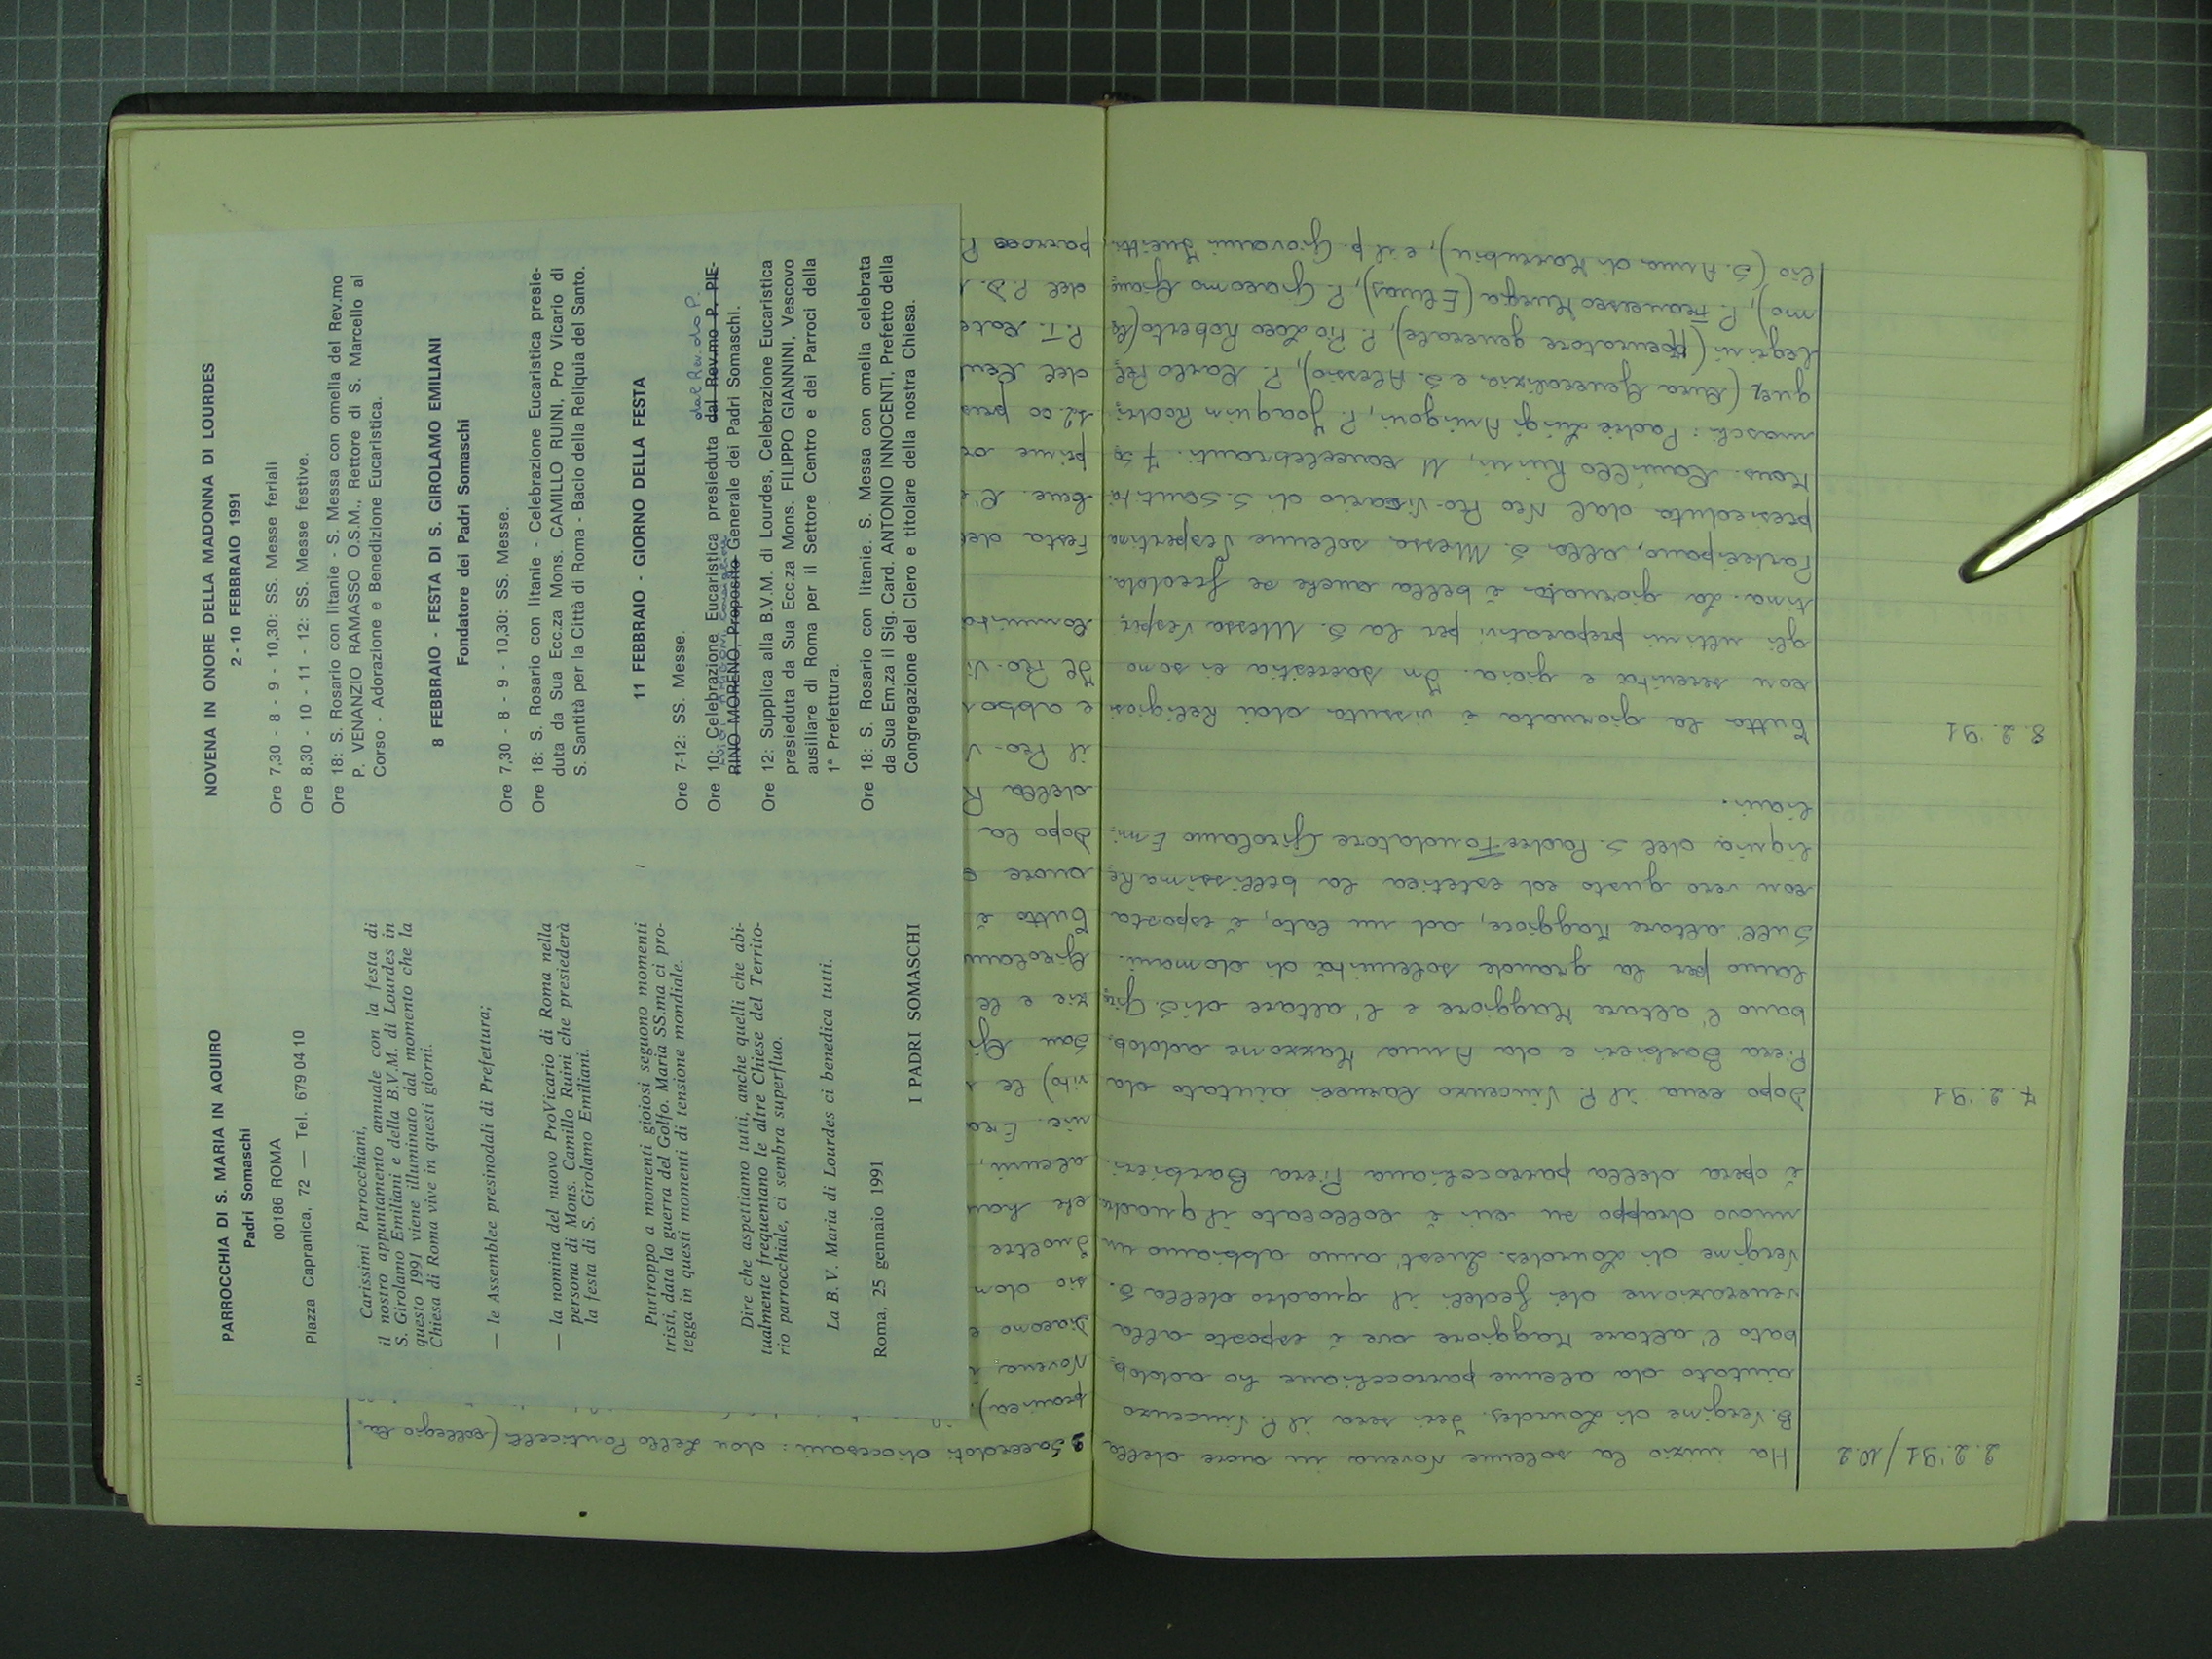 2.2.'91/10.2
Ha inizio la solenne Novena in onore della
B. Vergine di Lourdes. Ieri sera il P. Vincenzo
aiutato da alcune parrocchiane ha addob=
bato l'altare Maggiore ove è esposto alla
venerazione dei fedeli il quadro della S.
Vergine di Lourdes. Quest'anno abbiamo un
nuovo drappo su cui è collocato il quadro
è opera della parrocchiana Piera Barbieri.
7.2.'91
Dopo cena il P. Vincenzo aiutato da
Piera Barbieri e da Anna Mazzone addob=
bano l'altare Maggiore e l'altare di S. Giro=
lamo per la grande solennità di domani.
Sull'altare Maggiore, ad un lato, è esposta
con vero gusto ed estetica la bellissima Re=
liquia del S. Padre Fondatore Girolamo Emi=
liani.
8.2.'91
Tutta la giornata è vissuta dai Religiosi
con serenità e gioia. In sacrestia ci sono
gli ultimi preparativi per la S. Messa vesper=
tina. La giornata è bella anche se fredda.
Partecipano, alla S. Messa solenne Vespertina
presieduta dal Neo Pro-Vicario di S. Santità
Mons. Camillo Ruini, 11 concelebranti. 7 So=
maschi: Padre Luigi Amigoni, P. Joaquin Rodri=
guez (Curia Generalizia e S. Alessio), P. Carlo Pel=
legrini (Procuratore generale), P. Pio Loco Roberto
mo), P. Francesco Murgia (Elmas), P. Giacomo
lio (S. Anna di Morrubiu), e il p. Giovanni
2 Sacerdoti diocesani: don Lello Ponticelli (collegio Ca=
pranica),
Novena,
diacono e
sio dom
Inoltre
che han
alcuni,
nie. Era
vito) le
San Gi
zie e le
Girolam
Tutto è
onore
Dopo la
della R
il Pro-V
e abbo
Il Pro-Vi
Comunità
Festa del
bene. L'
prime or
12.00 pres
del
P.T.
del P.D.
parroco P.
PARROCCHIA DI S. MARIA IN AQUIRO
Padri Somaschi
00186 ROMA
Piazza Capranica, 72 — Tel. 679 04 10
Carissimi Parrocchiani,
il nostro appuntamento annuale con la festa di
S. Girolamo Emiliani e della B.V.M. di Lourdes in
questo 1991 viene illuminato dal momento che la
Chiesa di Roma vive in questi giorni.
— le Assemblee presinodali di Prefettura;
— la nomina del nuovo ProVicario di Roma nella
persona di Mons. Camillo Ruini che presiederà
la festa di S. Girolamo Emiliani.
Purtroppo a momenti gioiosi seguono momenti
tristi, data la guerra del Golfo. Maria SS.ma ci pro-
tegga in questi momenti di tensione mondiale.
Dire che aspettiamo tutti, anche quelli che abi-
tualmente frequentano le altre Chiese del Territo-
rio parrocchiale, ci sembra superfluo.
La B.V. Maria di Lourdes ci benedica tutti.
Roma, 25 gennaio 1991
I PADRI SOMASCHI
NOVENA IN ONORE DELLA MADONNA DI LOURDES
2 - 10 FEBBRAIO 1991
Ore 7,30 - 8 - 9 - 10,30: SS. Messe feriali
Ore 8,30 - 10 - 11 - 12: SS. Messe festive.
Ore 18: S. Rosario con litanie - S. Messa con omelia del Rev.mo
P. VENANZIO RAMASSO O.S.M., Rettore di S. Marcello al
Corso - Adorazione e Benedizione Eucaristica.
8 FEBBRAIO - FESTA DI S. GIROLAMO EMILIANI
Fondatore dei Padri Somaschi
Ore 7,30 - 8 - 9 - 10,30: SS. Messe.
Ore 18: S. Rosario con litanie - Celebrazione Eucaristica presie-
duta da Sua Ecc.za Mons. CAMILLO RUINI, Pro Vicario di
S. Santità per la Città di Roma - Bacio della Reliquia del Santo.
11 FEBBRAIO - GIORNO DELLA FESTA
Ore 7-12: SS. Messe.
dal Rev.do P.
Ore 10: Celebrazione Eucaristica presieduta dal Rev.mo P. PIE-
LUIGI AMIGONI Consigliere
RINO MORENO, Preposito Generale dei Padri Somaschi.
Ore 12: Supplica alla B.V.M. di Lourdes, Celebrazione Eucaristica
presieduta da Sua Ecc.za Mons. FILIPPO GIANNINI, Vescovo
ausiliare di Roma per il Settore Centro e dei Parroci della
1ª Prefettura.
Ore 18: S. Rosario con litanie. S. Messa con omelia celebrata
da Sua Em.za il Sig. Card. ANTONIO INNOCENTI, Prefetto della
Congregazione del Clero e titolare della nostra Chiesa.